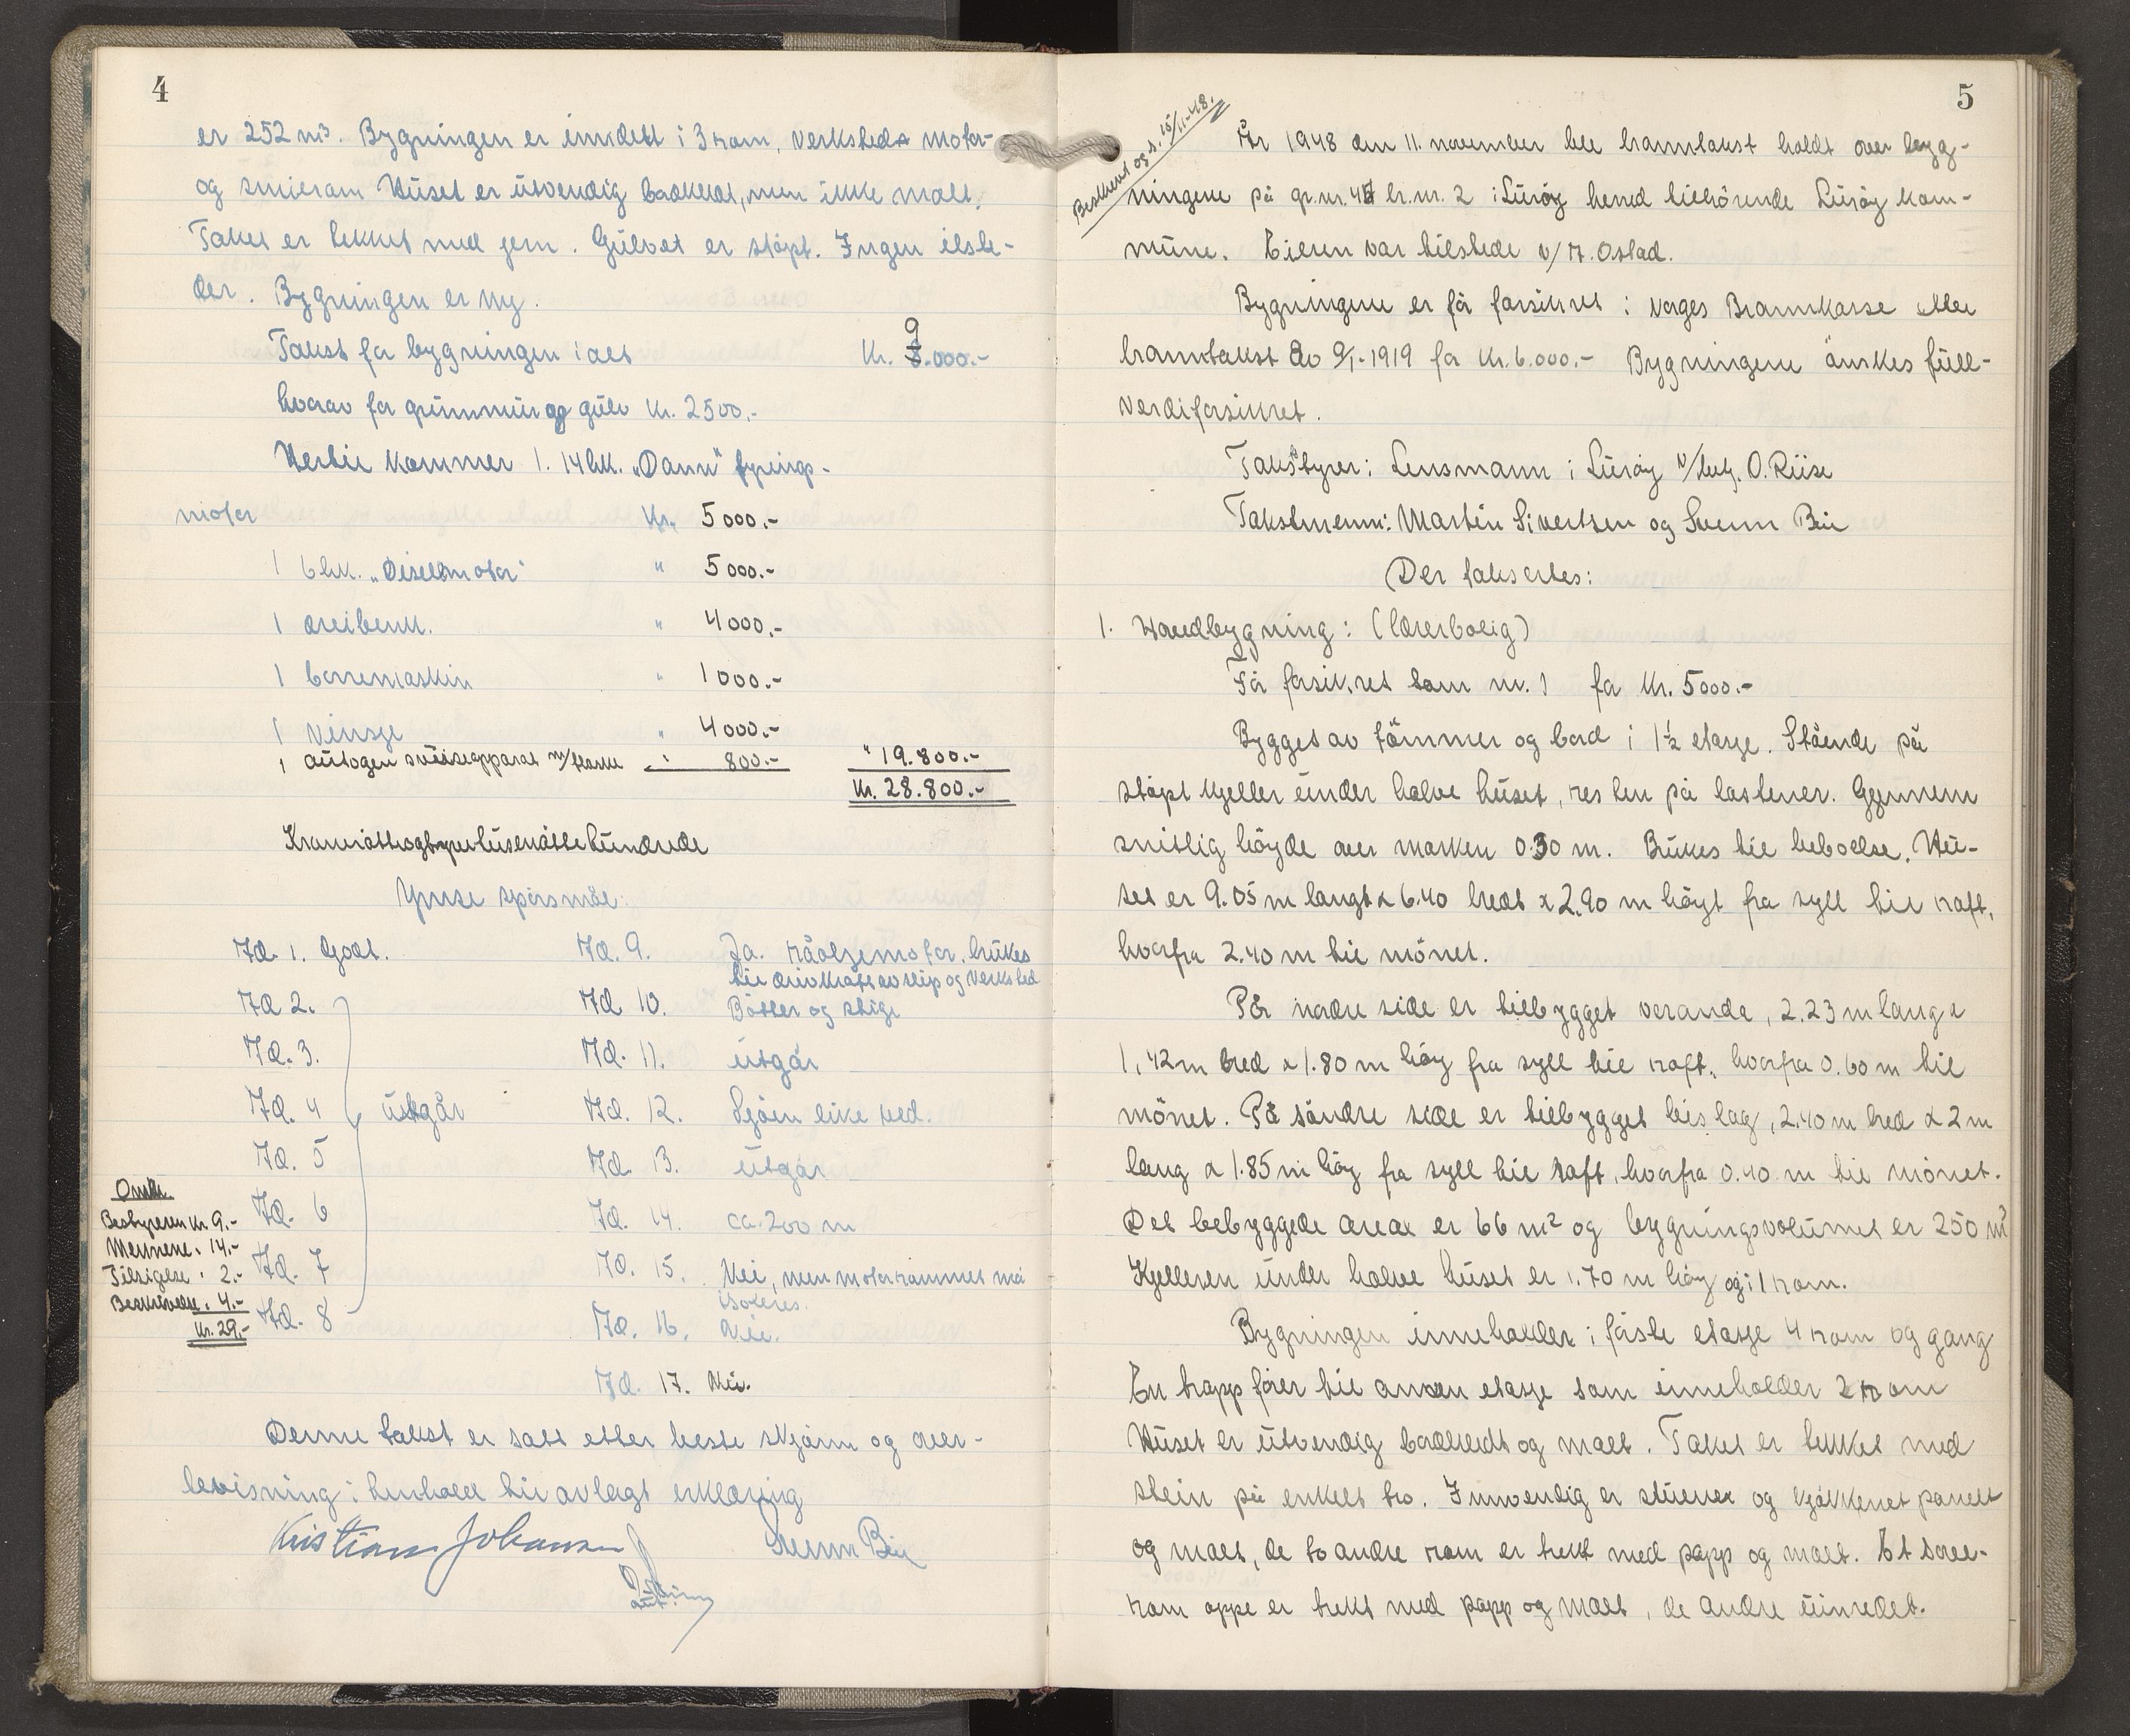 4
er 252 m³. Bygningen er innredet i 3 rom, verksted motor-
og smierom Huset er utvendig bordkledt, men ikke malt.
Taket er tekket med jern. Gulvet er støpt. Ingen ilste-
der. Bygningen er ny.
Takst for bygningen i alt Kr. 9.000.-
hvorav for grunnmur og gulv kr. 2500.-
Hertil kommer 1. 14 hk. „Dann" fyrings-
motor Kr. 5000.-
1 6 hk. „Diselmotor" " 5000.-
1 dreibenk. " 4000.-
1 borremaskin " 1000.-
1 vinsje " 4000.-
1 autogen sveiseapparat m/flaske " 800.- " 19.800.-
Kr. 28.800.-
Kroneråtteogtyvetusenåttehundrede
Ymse spørsmål:
Ad. 1. Godt.
Ad 2.
Ad. 3.
Ad. 4 utgår
Ad. 5
Ad. 6
Ad. 7
Ad. 8
Ad. 9. Ja. råoljemotor, brukes
til drivkraft av slip og verksted
Ad 10. Bøtter og stige
Ad. 11. utgår
Ad. 12. Sjøen like ved.
Ad. 13. utgår
Ad. 14. ca. 200 m
Ad. 15. Nei, men motorrommet må
isoleres.
Ad. 16. Nei.
Ad. 17. Nei.
Omk.
Bestyreren kr. 9.-
Mennene " 14.-
Tilsigelse " 2.-
Beskrivelse " 4.-
Kr. 29.-
Denne takst er satt etter beste skjønn og over-
bevisning i henhold til avlagt erklæring
Kristian Johansen Svenn Bei
5
Beskrevet og s. 15/11-48.
År 1948 den 11. november ble branntakst holdt over byg-
ningene på gr.nr. 45 br.nr. 2 i Lurøy herred tilhørende Lurøy kom-
mune. Eieren var tilstede v/ A. Ostad.
Bygningene er før forsikret i Norges Brannkasse etter
branntakst av 9/1-1919 for kr. 6.000.- Bygningene ønskes full-
verdiforsikret.
Takstbyrer: Lensmann i Lurøy v/betj. O. Riise
Takstmenn: Martin Sivertsen og Svenn Bei
Der taksertes:
1. Hovedbygning: (lærerbolig)
Før forsikret som nr. 1 for kr. 5000.-
Bygget av tømmer og bord i 1½ etasje. Stående på
støpt kjeller under halve huset, resten på lastener. Gjennem
snitlig høyde over marken 0.30 m. Brukes til beboelse. Hu-
set er 9.05 m langt x 6.40 bredt x 2.90 m høyt fra syll til raft,
hvorfra 2.40 m til mønet.
På nordre side er tilbygget veranda, 2.23 m lang x
1,42 m bred x 1.80 m høy fra syll til raft, hvorfra 0.60 m til
mønet. På søndre side er tilbygget bislag, 2.40 m bred x 2 m
lang x 1.85 m høy fra syll til raft, hvorfra 0.40 m til mønet.
Det bebyggede areal er 66 m² og bygningsvolumet er 250 m³
Kjelleren under halve huset er 1.70 m høy og i 1 rom.
Bygningen inneholder i første etasje 4 rom og gang
En trapp fører til annen etasje som inneholder 2 rom
Huset er utvendig bordkledt og malt. Taket er tekket med
stein på enkelt tro. Innvendig er stuene og kjøkkenet panelt
og malt, de to andre rom er trekt med papp og malt. Et sove-
rom oppe er trekt med papp og malt, de andre uinredet.